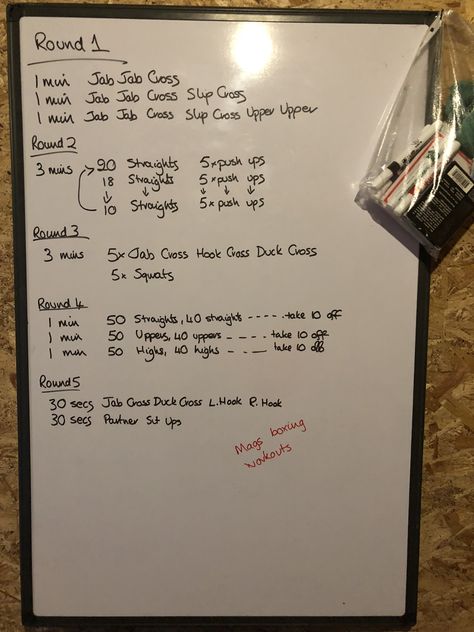 Round 1
1 min Jab Jab Cross
1 min Jab Jab Cross Slip Cross
1 min Jab Jab Cross Slip Cross Upper Upper
Round 2
3 mins 20 Straights 5 x push ups
18 Straights 5 x push ups
↓ ↓ ↓ ↓ ↓
10 Straights 5 x push ups
Round 3
3 mins 5x Jab Cross Hook Cross Duck Cross
5x Squats
Round 4
1 min 50 Straights, 40 straights ----- take 10 off
1 min 50 Uppers, 40 uppers ----- take 10 off
1 min 50 Highs, 40 highs ----- take 10 off
Round 5
30 secs Jab Cross Duck Cross L.Hook R.Hook
30 secs Partner Sit Ups
Mags boxing
workouts